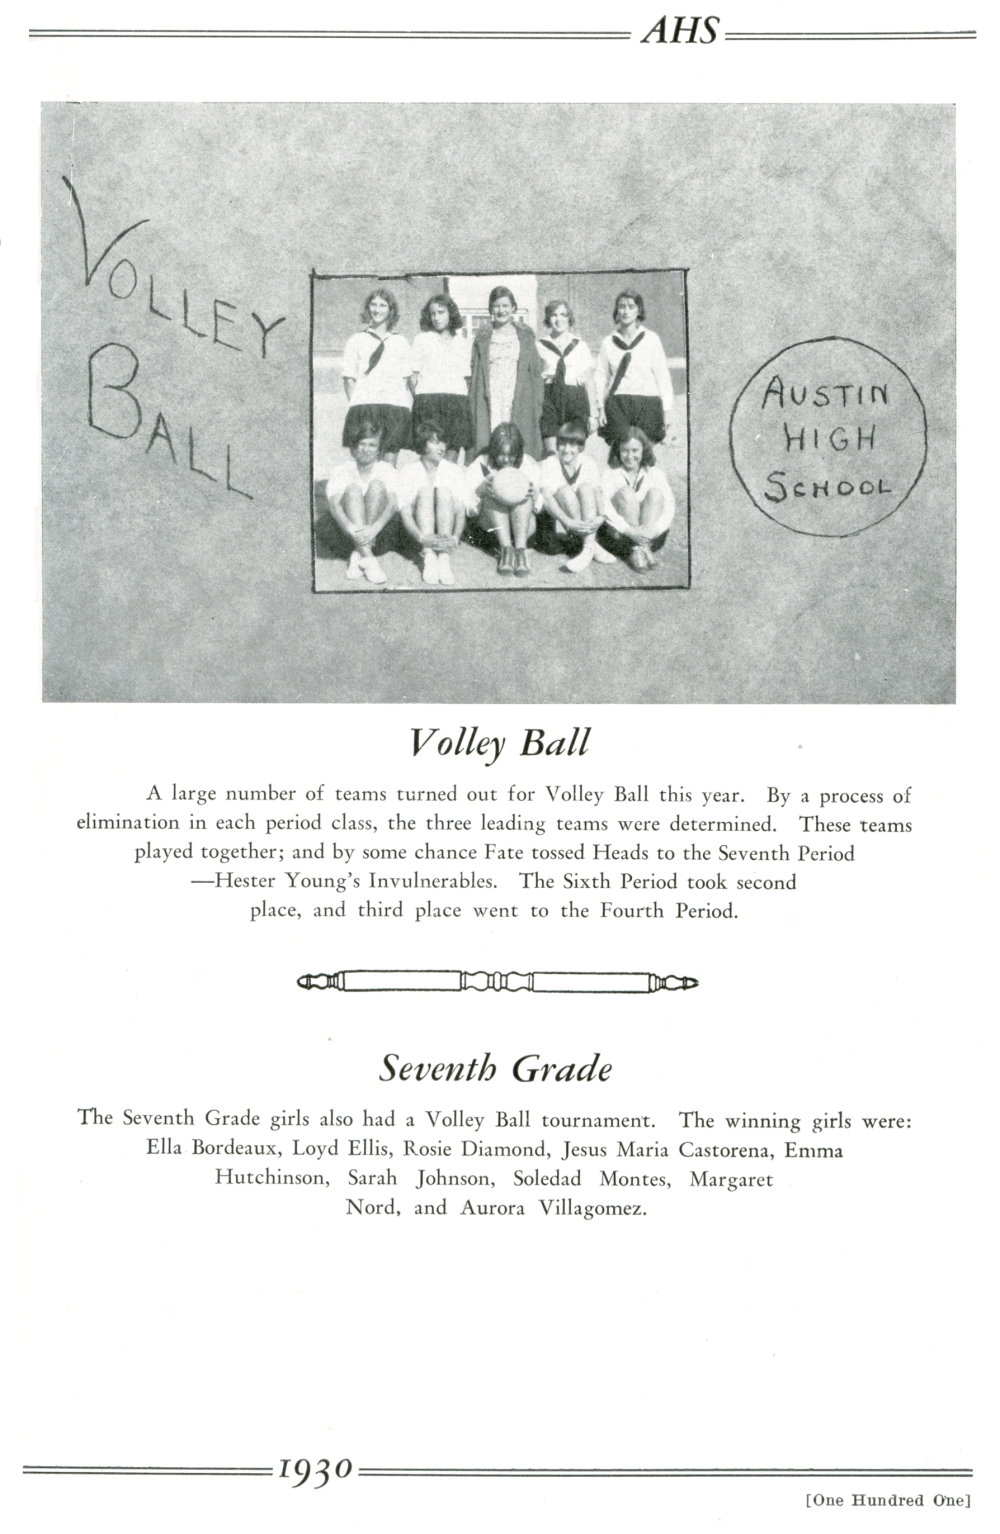 AHS
VOLLEY
BALL
AUSTIN
HIGH
SCHOOL
Volley Ball
A large number of teams turned out for Volley Ball this year. By a process of
elimination in each period class, the three leading teams were determined. These teams
played together; and by some chance Fate tossed Heads to the Seventh Period
—Hester Young's Invulnerables. The Sixth Period took second
place, and third place went to the Fourth Period.
Seventh Grade
The Seventh Grade girls also had a Volley Ball tournament. The winning girls were:
Ella Bordeaux, Loyd Ellis, Rosie Diamond, Jesus Maria Castorena, Emma
Hutchinson, Sarah Johnson, Soledad Montes, Margaret
Nord, and Aurora Villagomez.
1930
[One Hundred One]